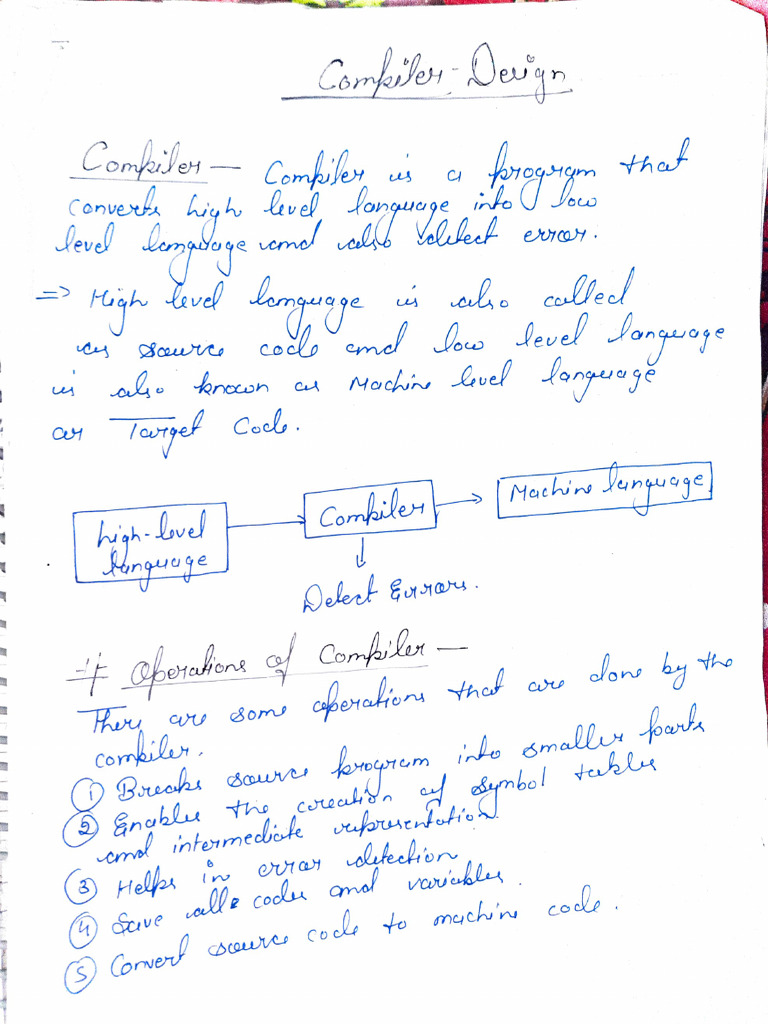 Compiler-Design
Compiler — Compiler is a program that
converts high level language into low
level language and also detect error.
=> High level language is also called
as source code and low level language
is also known as Machine level language
or Target Code.
high-level
language
Compiler
Machine language
Detect Errors.
# Operations of Compiler —
There are some operations that are done by the
compiler.
① Breaks source program into smaller parts
② Enables the creation of symbol tables
and intermediate representation.
③ Helps in error detection
④ Save all codes and variables.
⑤ Convert source code to machine code.